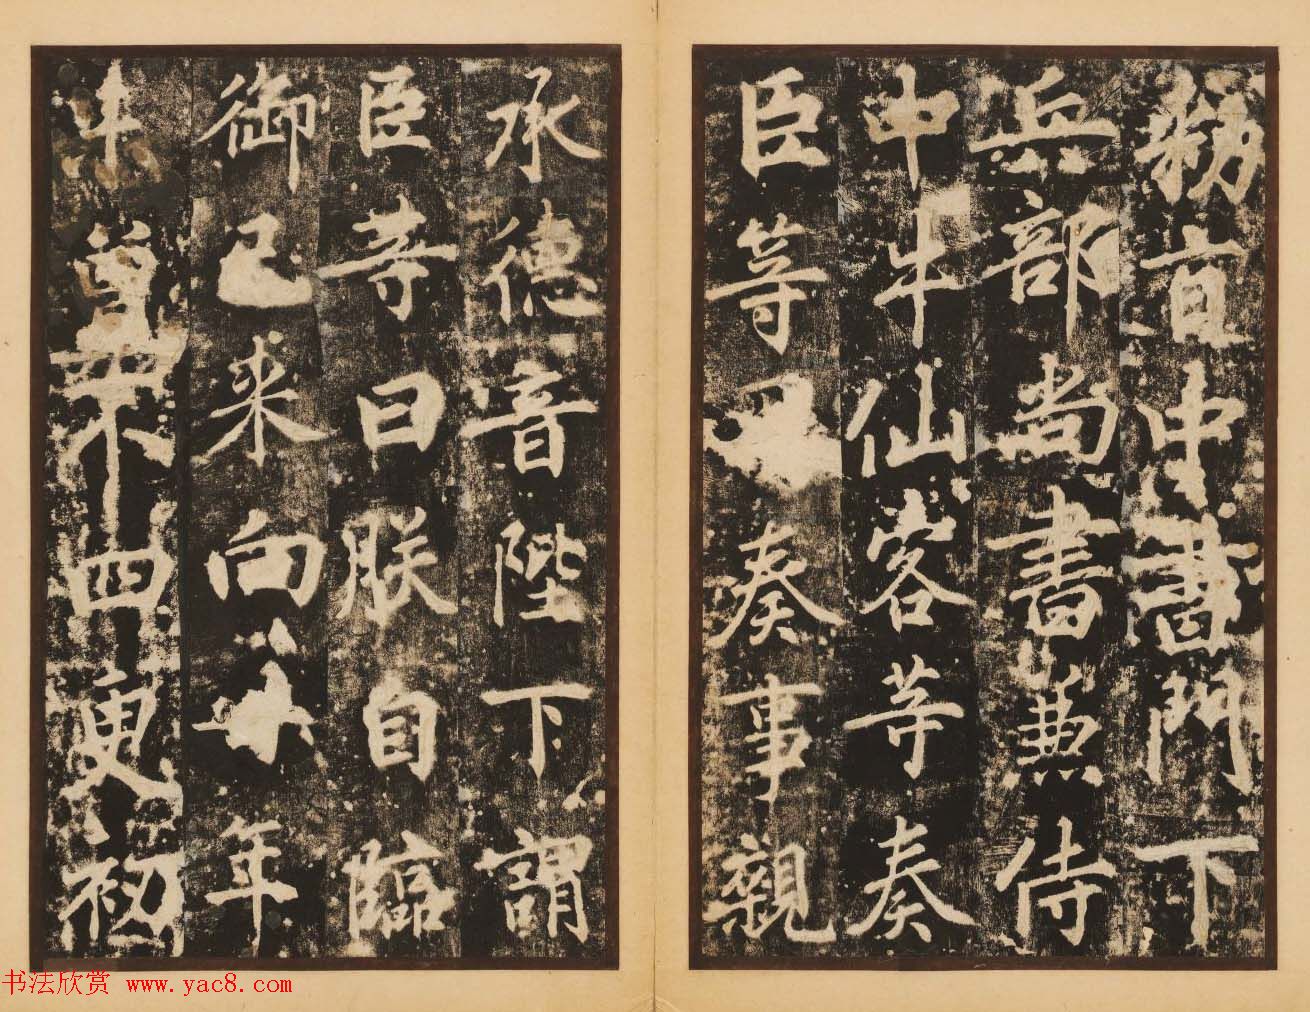 勑旨中書門下
兵部尚書兼侍
中牛仙客等奏
臣等奏事親
承德音陛下謂
臣等曰朕自臨
御已來向年
尊下四更初
书法欣赏 www.yac8.com